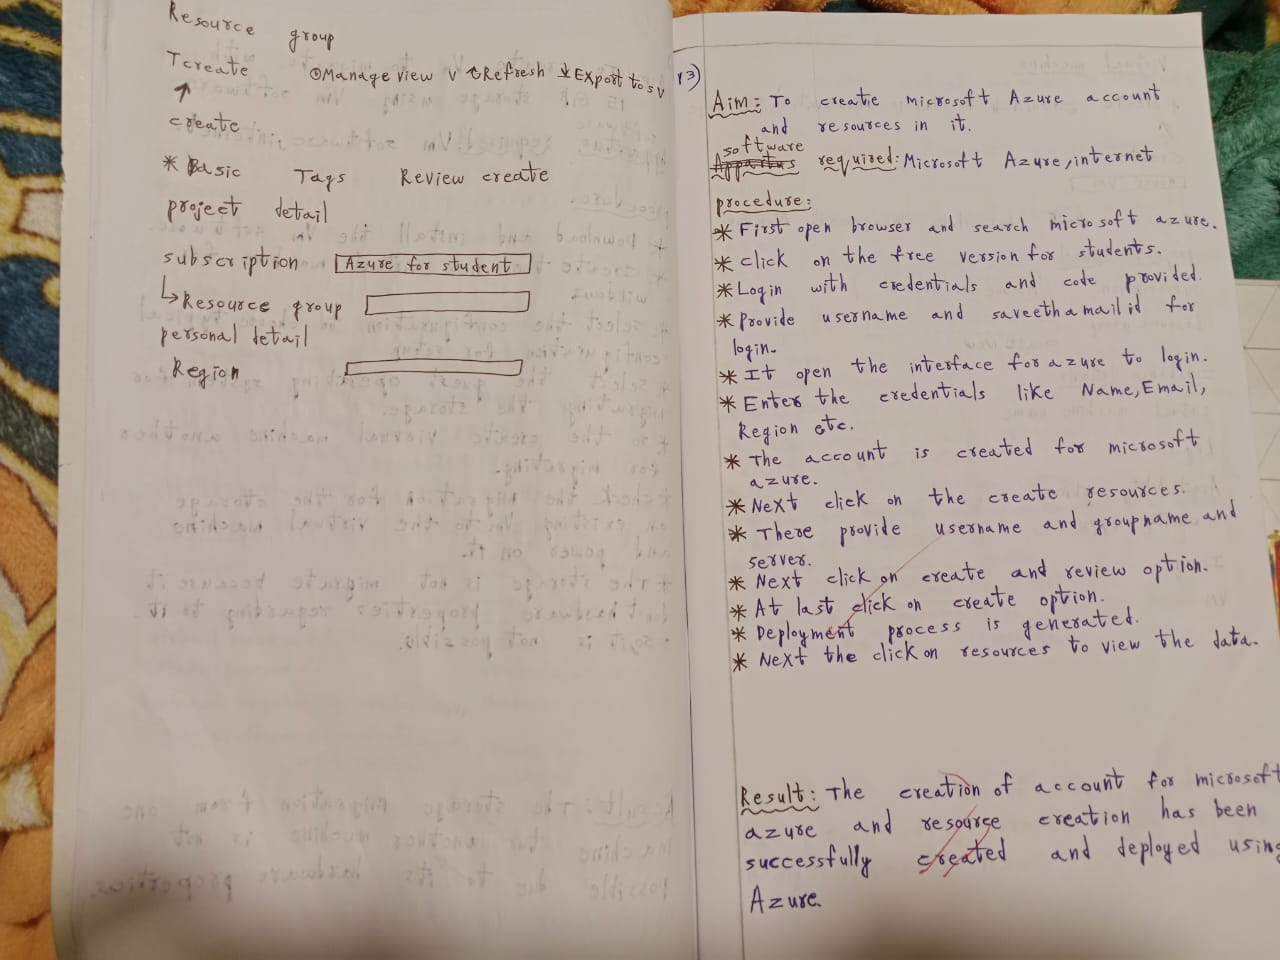 Resource group
Tcreate ⊙Manage view ∨ ↻Refresh ↓Export to sv
↑
create
* Basic Tags Review create
project detail
subscription Azure for student
↳Resource group
personal detail
Region
13)
Aim: To create microsoft Azure account
and resources in it.
software
Appartus required: Microsoft Azure, internet
procedure:
* First open browser and search microsoft azure.
* click on the free version for students.
* Login with credentials and code provided.
* Provide username and saveetha mail id for
login.
* It open the interface for azure to login.
* Enter the credentials like Name, Email,
Region etc.
* The account is created for microsoft
azure.
* Next click on the create resources.
* There provide username and groupname and
server.
* Next click on create and review option.
* At last click on create option.
* Deployment process is generated.
* Next the click on resources to view the data.
Result: The creation of account for microsoft
azure and resource creation has been
successfully created and deployed using
Azure.